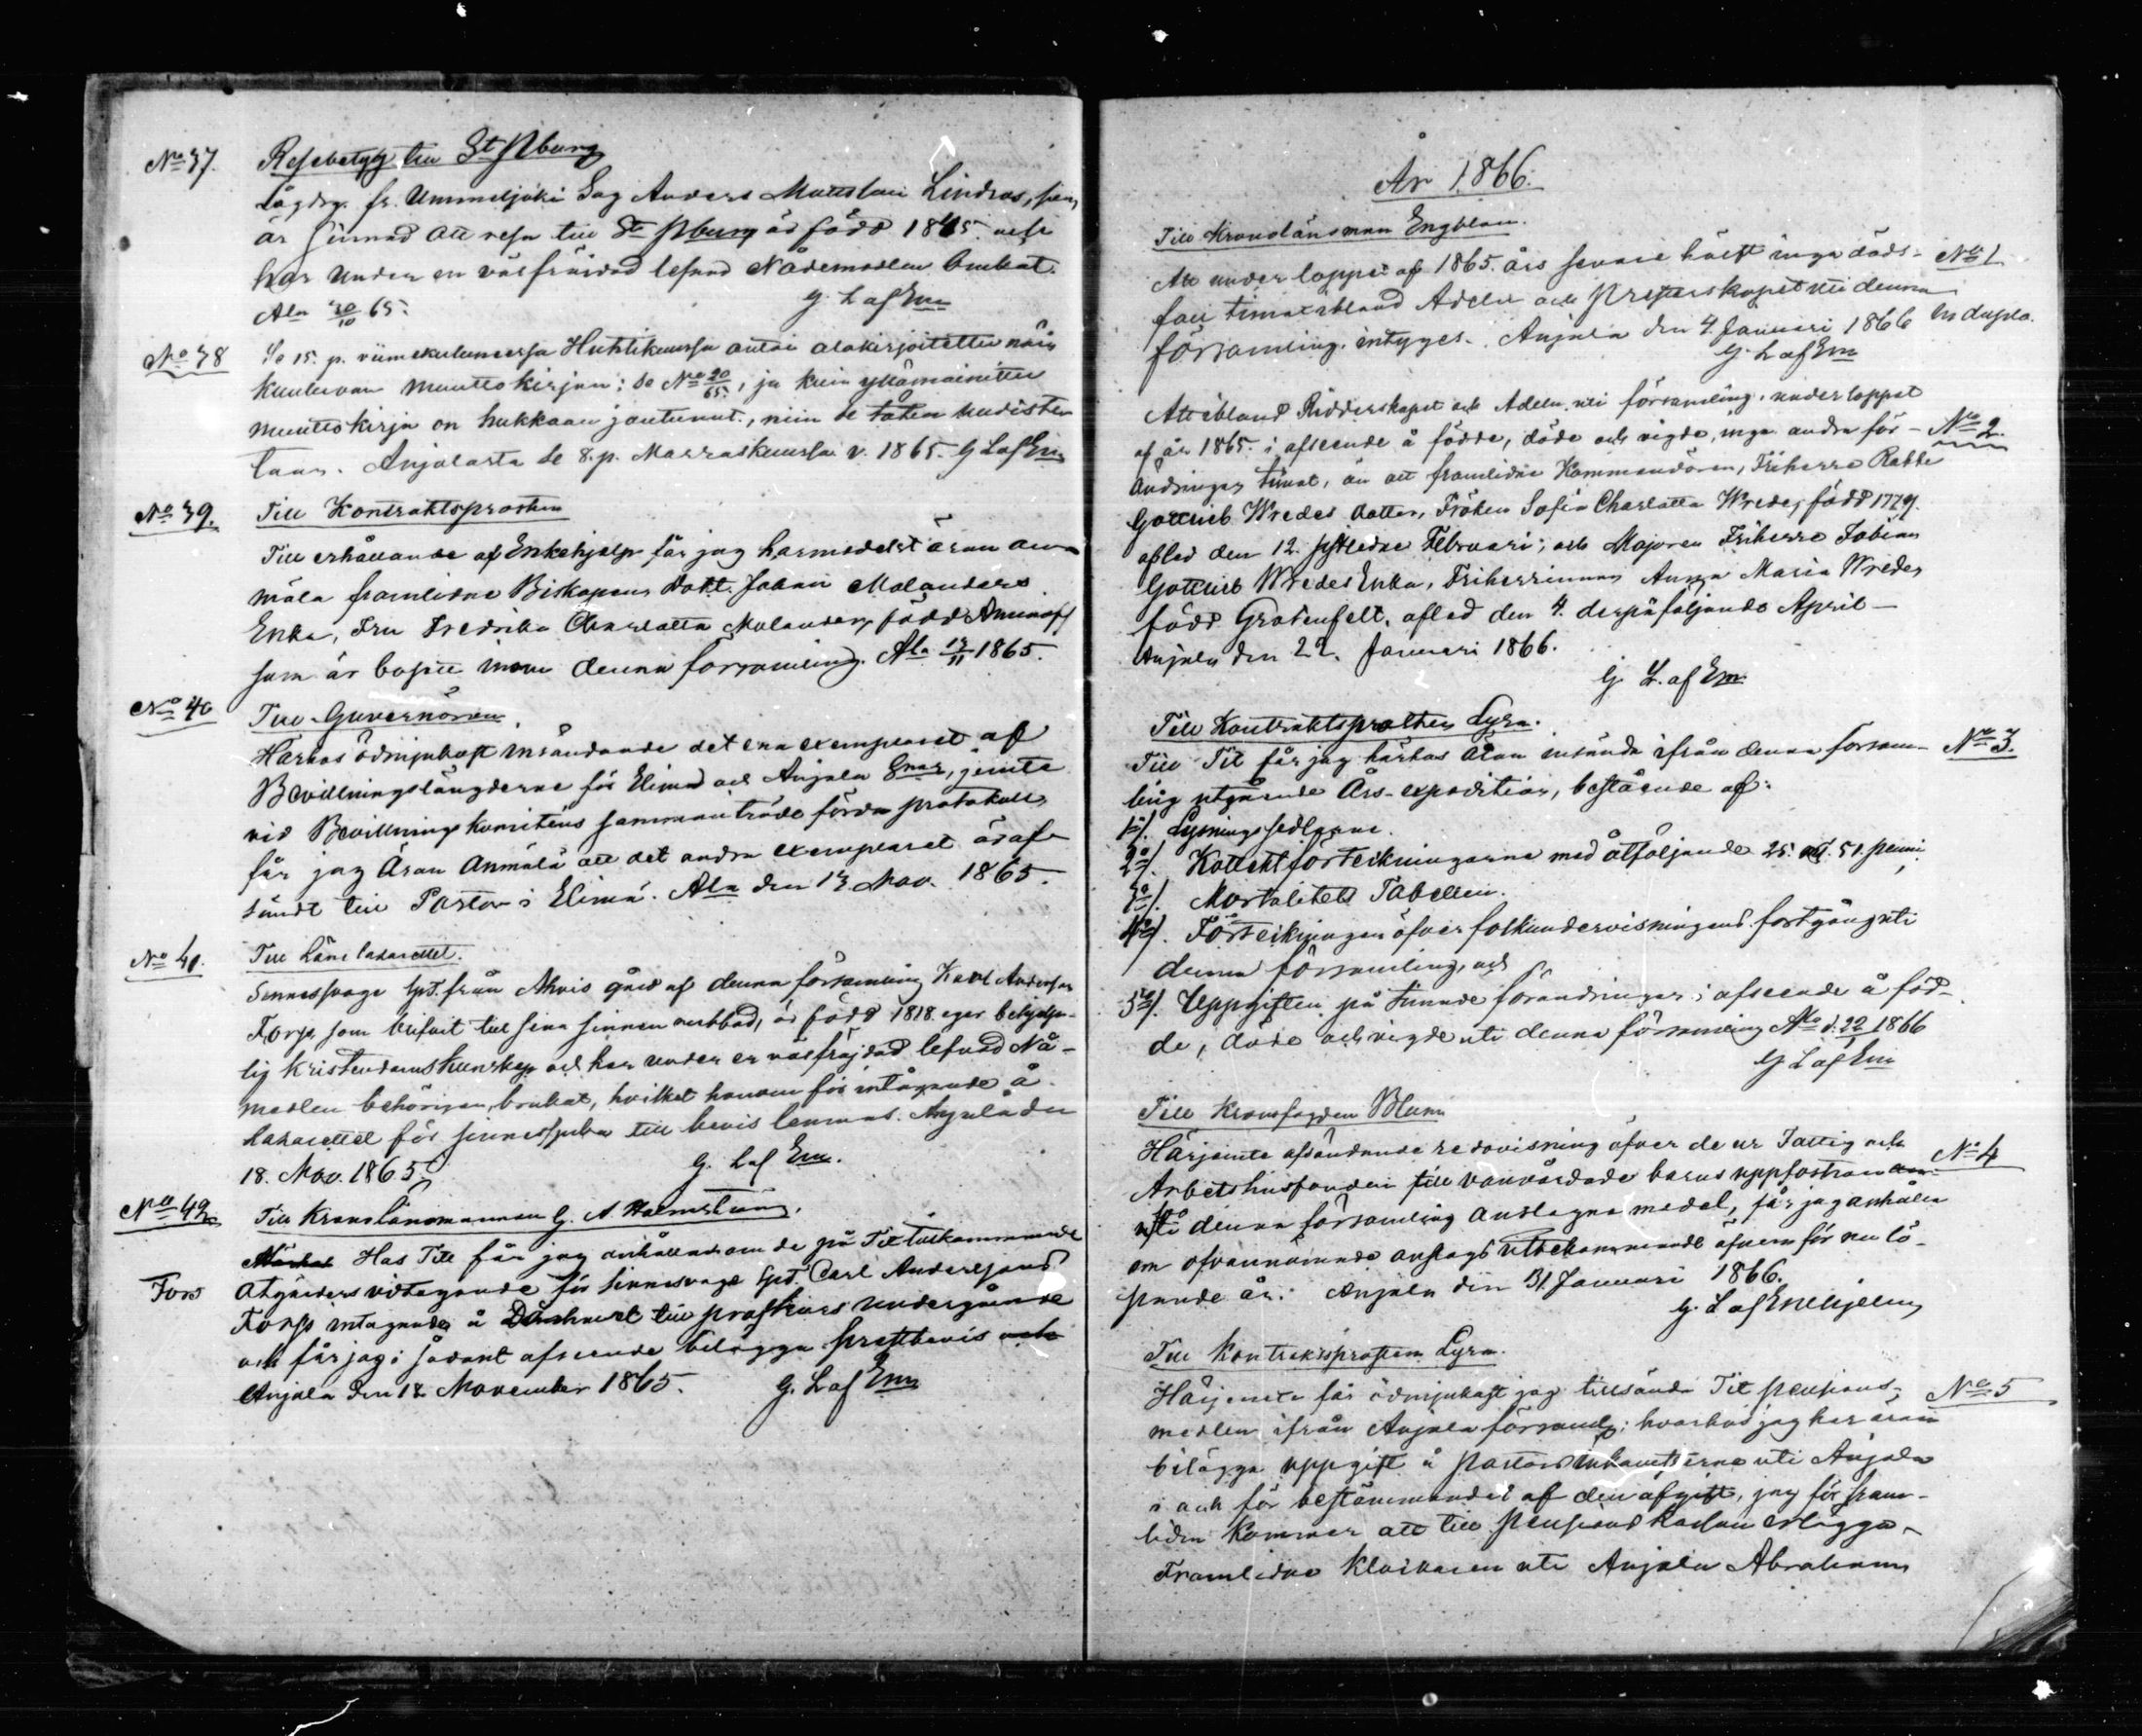 No 37. Resebetyg till St Pburg
Lågdrg. fr. Ummeljoki Sag Anders Mattsson Lindros, som
är sinnad att resa till St Pburg är född 1845. och
har under en väl fräjdad lefnad Nådemedlen brukat.
Ala 30/10 65. G. L af Em
No 38 Se 15. p. viimekuluneessa Huhtikuussa antoi alakirjoitettu näin
kuuluvan muuttokirjan: se No 20/65, ja kuin ylämainittu
muuttokirja on hukkaan joutunut, niin se täten uudiste-
taan. Anjalasta se 8. p. Marraskuussa v. 1865. G L af Em
No 39. Till Kontraktsprosten
Till erhållande af Enkehjelp får jag härmedelst äran an-
mäla framlidne Biskopens Dokt. Johan Molanders
Enka, Fru Fredrika Charlotta Molander, född Aminoff
som är bosatt inom denna församling. Ala 13/11 1865.
No 40 Till Guvernören.
Härhos ödmjukast insändande det ena exemplaret af
Bevillningslängderne för Elimä och Anjala Snar, jemte
vid Bevillnings Komiténs sammanträde förda protokoll,
får jag äran anmäla att det andra exemplaret är af-
sändt till Pastor i Elimä. Ala den 13 Nov. 1865.
No 41. Till Länelasarettet.
Sinnessvage Spt. från Ahvis gård af denna församling Karl Andersson
Forss, som blifvit till sina sinnen rubbad, är född 1818. eger behjelp-
lig Kristendomskunskap och har under en väl fräjdad lefnad Nå-
medlen behörigen brukat, hvilket honom för intagande å
Lasarettet för sinnessjuka till bevis lemnas. Anjala den
18. Nov. 1865. G. L af Em.
No 42 Till Kronolänsmannen G. A. Holmström.
Härhos Hos Titl får jag anhålla om de på Tit tillkommande
Fors åtgärders vidtagande för sinnesvage Spt. Carl Anderssons
Forss intagande å Dårhuset till profkurs undergående
och får jag i sådant afseende bilägga prestbevis och
Anjala den 18 November 1865. G. L af Em
År 1866.
Till Kronolänsman Engblom.
Att under loppet af 1865. års senare hälft inga döds- No 1
fall timat ibland Adeln och Presterskapet uti denna
församling, intyges. Anjala den 4. Januari 1866 in duplo.
G. L af Em
Att ibland Ridderskapet och Adeln uti församling. under loppet
af år 1865. i afseende å födde, döde och vigde, inga andra för- No 2.
ändringar timat, än att framlidne Kommendören, Friherre Rabbe
Gottlieb Wredes dotter, Fröken Sofia Charlotta Wrede, född 1779.
afled den 12. sistledne Februari; och Majoren Friherre Fabian
Gottlieb Wredes Enka, Friherrinnan Anna Maria Wrede,
född Grotenfelt, afled den 4. derpåföljande April—
Anjala den 22. Januari 1866.
G. L. af Em.
Till Kontraktsprosten Lyra.
Till Tit får jag härhos äran insända ifrån denna försam- No 3.
ling utgående Års-expedition, bestående af:
1o/. Lysningssedlarne.
2o/. Kollektförteckningarne med åtföljande 25. . 51. penni,
3o/. Mortalitets Tabellen.
4o/. Förteckningen öfver folkundervisningens fortgång uti
denna församling, och
5o/. Uppgiften på timade förändringar i afseende å föd-
de, döde och vigde uti denna församling Ala d. 22/1 1866
G L af Em
Till Kronofogden Blum
Härjemte afsändande redovisning öfver de ur Fattig och No 4
Arbetshusfonden till vanvårdade barns uppfostran
uti denna församling anslagne medel, får jag anhålla
om ofvannämnde anslags utbekommande äfven för nu lö-
pande år. Anjala den 31. Januari 1866.
G. L af Enehjelm
Till Kontraktsprosten Lyra.
Härjemte får ödmjukast jag tillsända Tit pensions- No 5
medlen ifrån Anjala församlg; hvarhos jag har äran
bilägga uppgift å pastors inkomsterne uti Anjala
och för bestämmandet af den afgift, jag för fram-
tiden kommer att till pensions kassan erlägga.
Framlidne Klockaren uti Anjala Abraham